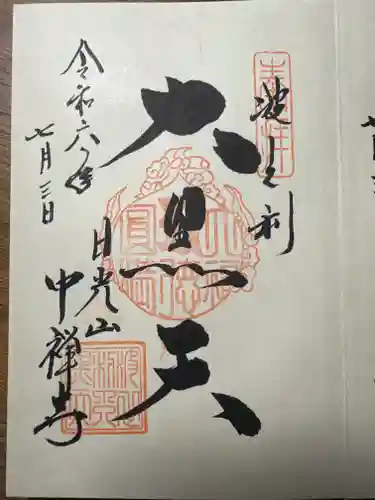 奉拝
波之利
大黒天
日光山
中禅寺
令和六年
七月三日